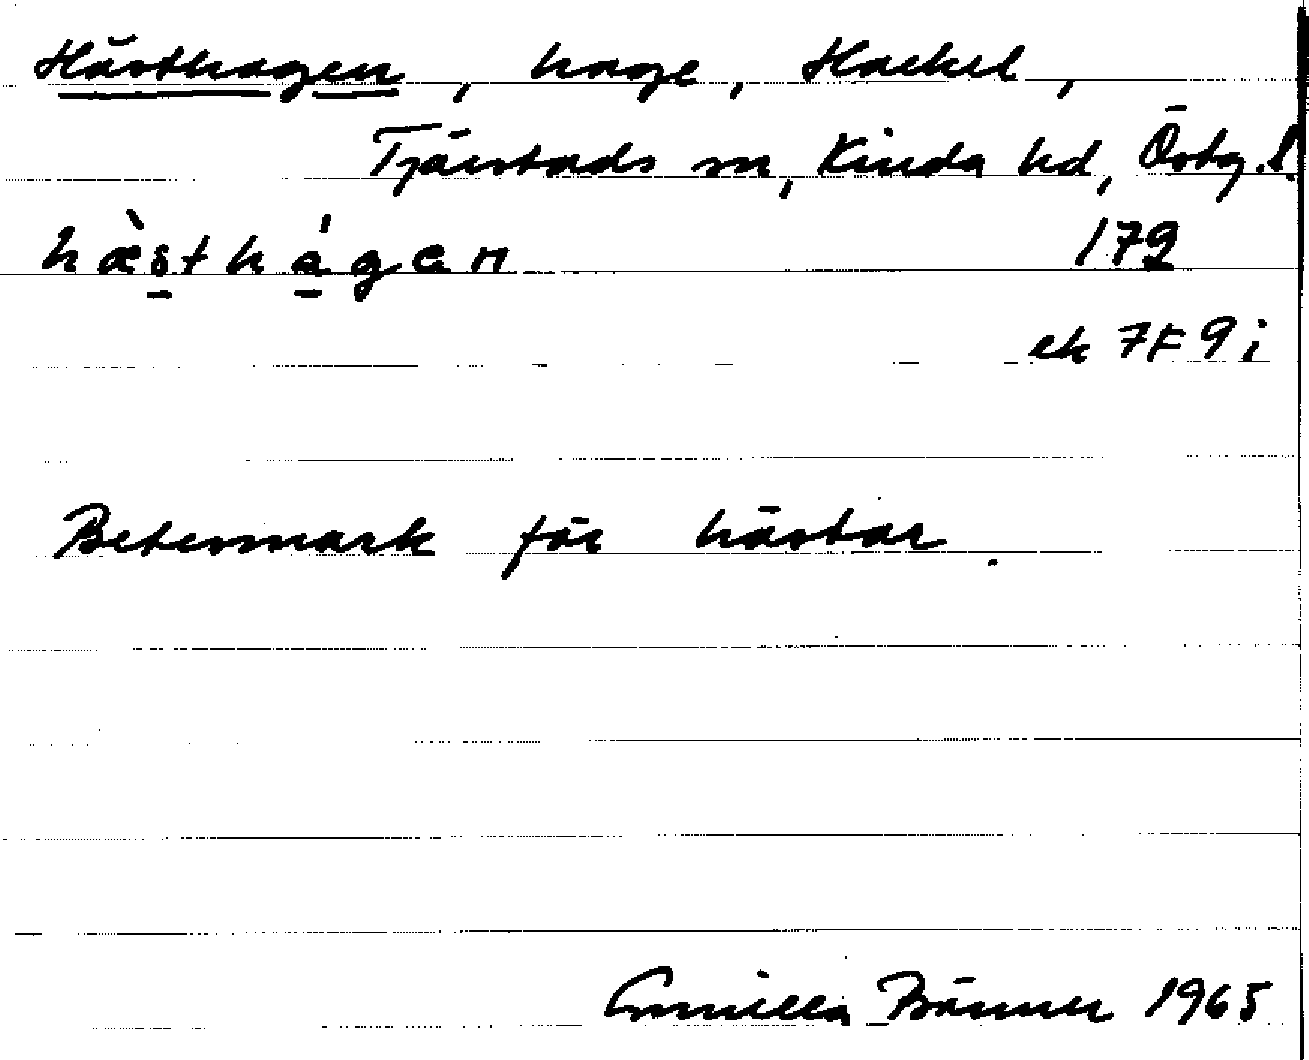 Hästhagen, hage, Hackel,
Tjärstads sn, Kinda hd, Östg.l.
hæ̀sthágen 179
ek 7F 9i
Betesmark för hästar.
1965